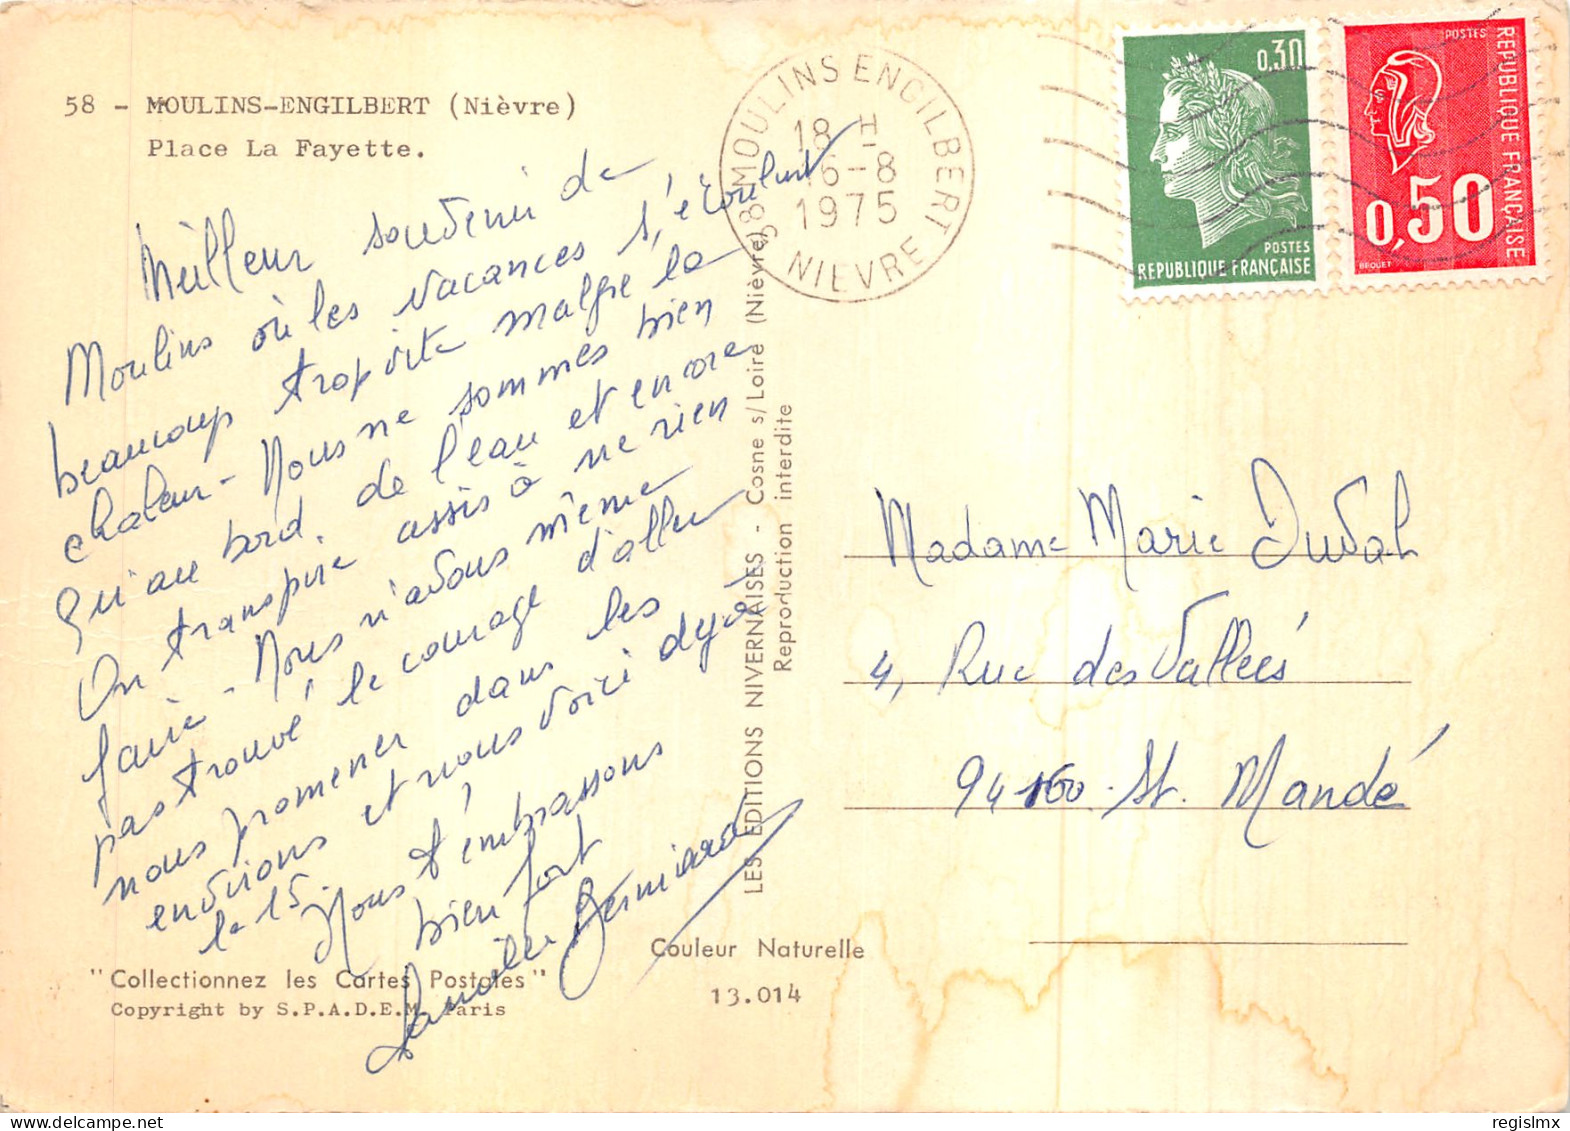 58 - MOULINS-ENGILBERT (Nièvre)
Place La Fayette.
Meilleur souvenir de
Moulins où les vacances s'écoulent
beaucoup trop vite malgré la
chaleur - Nous ne sommes bien
qu'au bord de l'eau et encore
On transpire assis à ne rien
faire - Nous n'avons même
pas trouvé le courage d'aller
nous promener dans les
environs et nous voici déjà
le 15, Nous t'embrassons
bien fort
Famille Berniard
"Collectionnez les Cartes Postales"
Copyright by S.P.A.D.E.M. Paris
LES EDITIONS NIVERNAISES - Cosne s/Loire (Nièvre)
Reproduction interdite
Couleur Naturelle
13.014
58 MOULINS ENGILBERT
18 H
16-8
1975
NIEVRE
0,30
POSTES
REPUBLIQUE FRANÇAISE
POSTES
REPUBLIQUE FRANÇAISE
0,50
BEQUET
Madame Marie Duval
4, Rue des Vallées
94160. St. Mandé
www.delcampe.net
regislmx